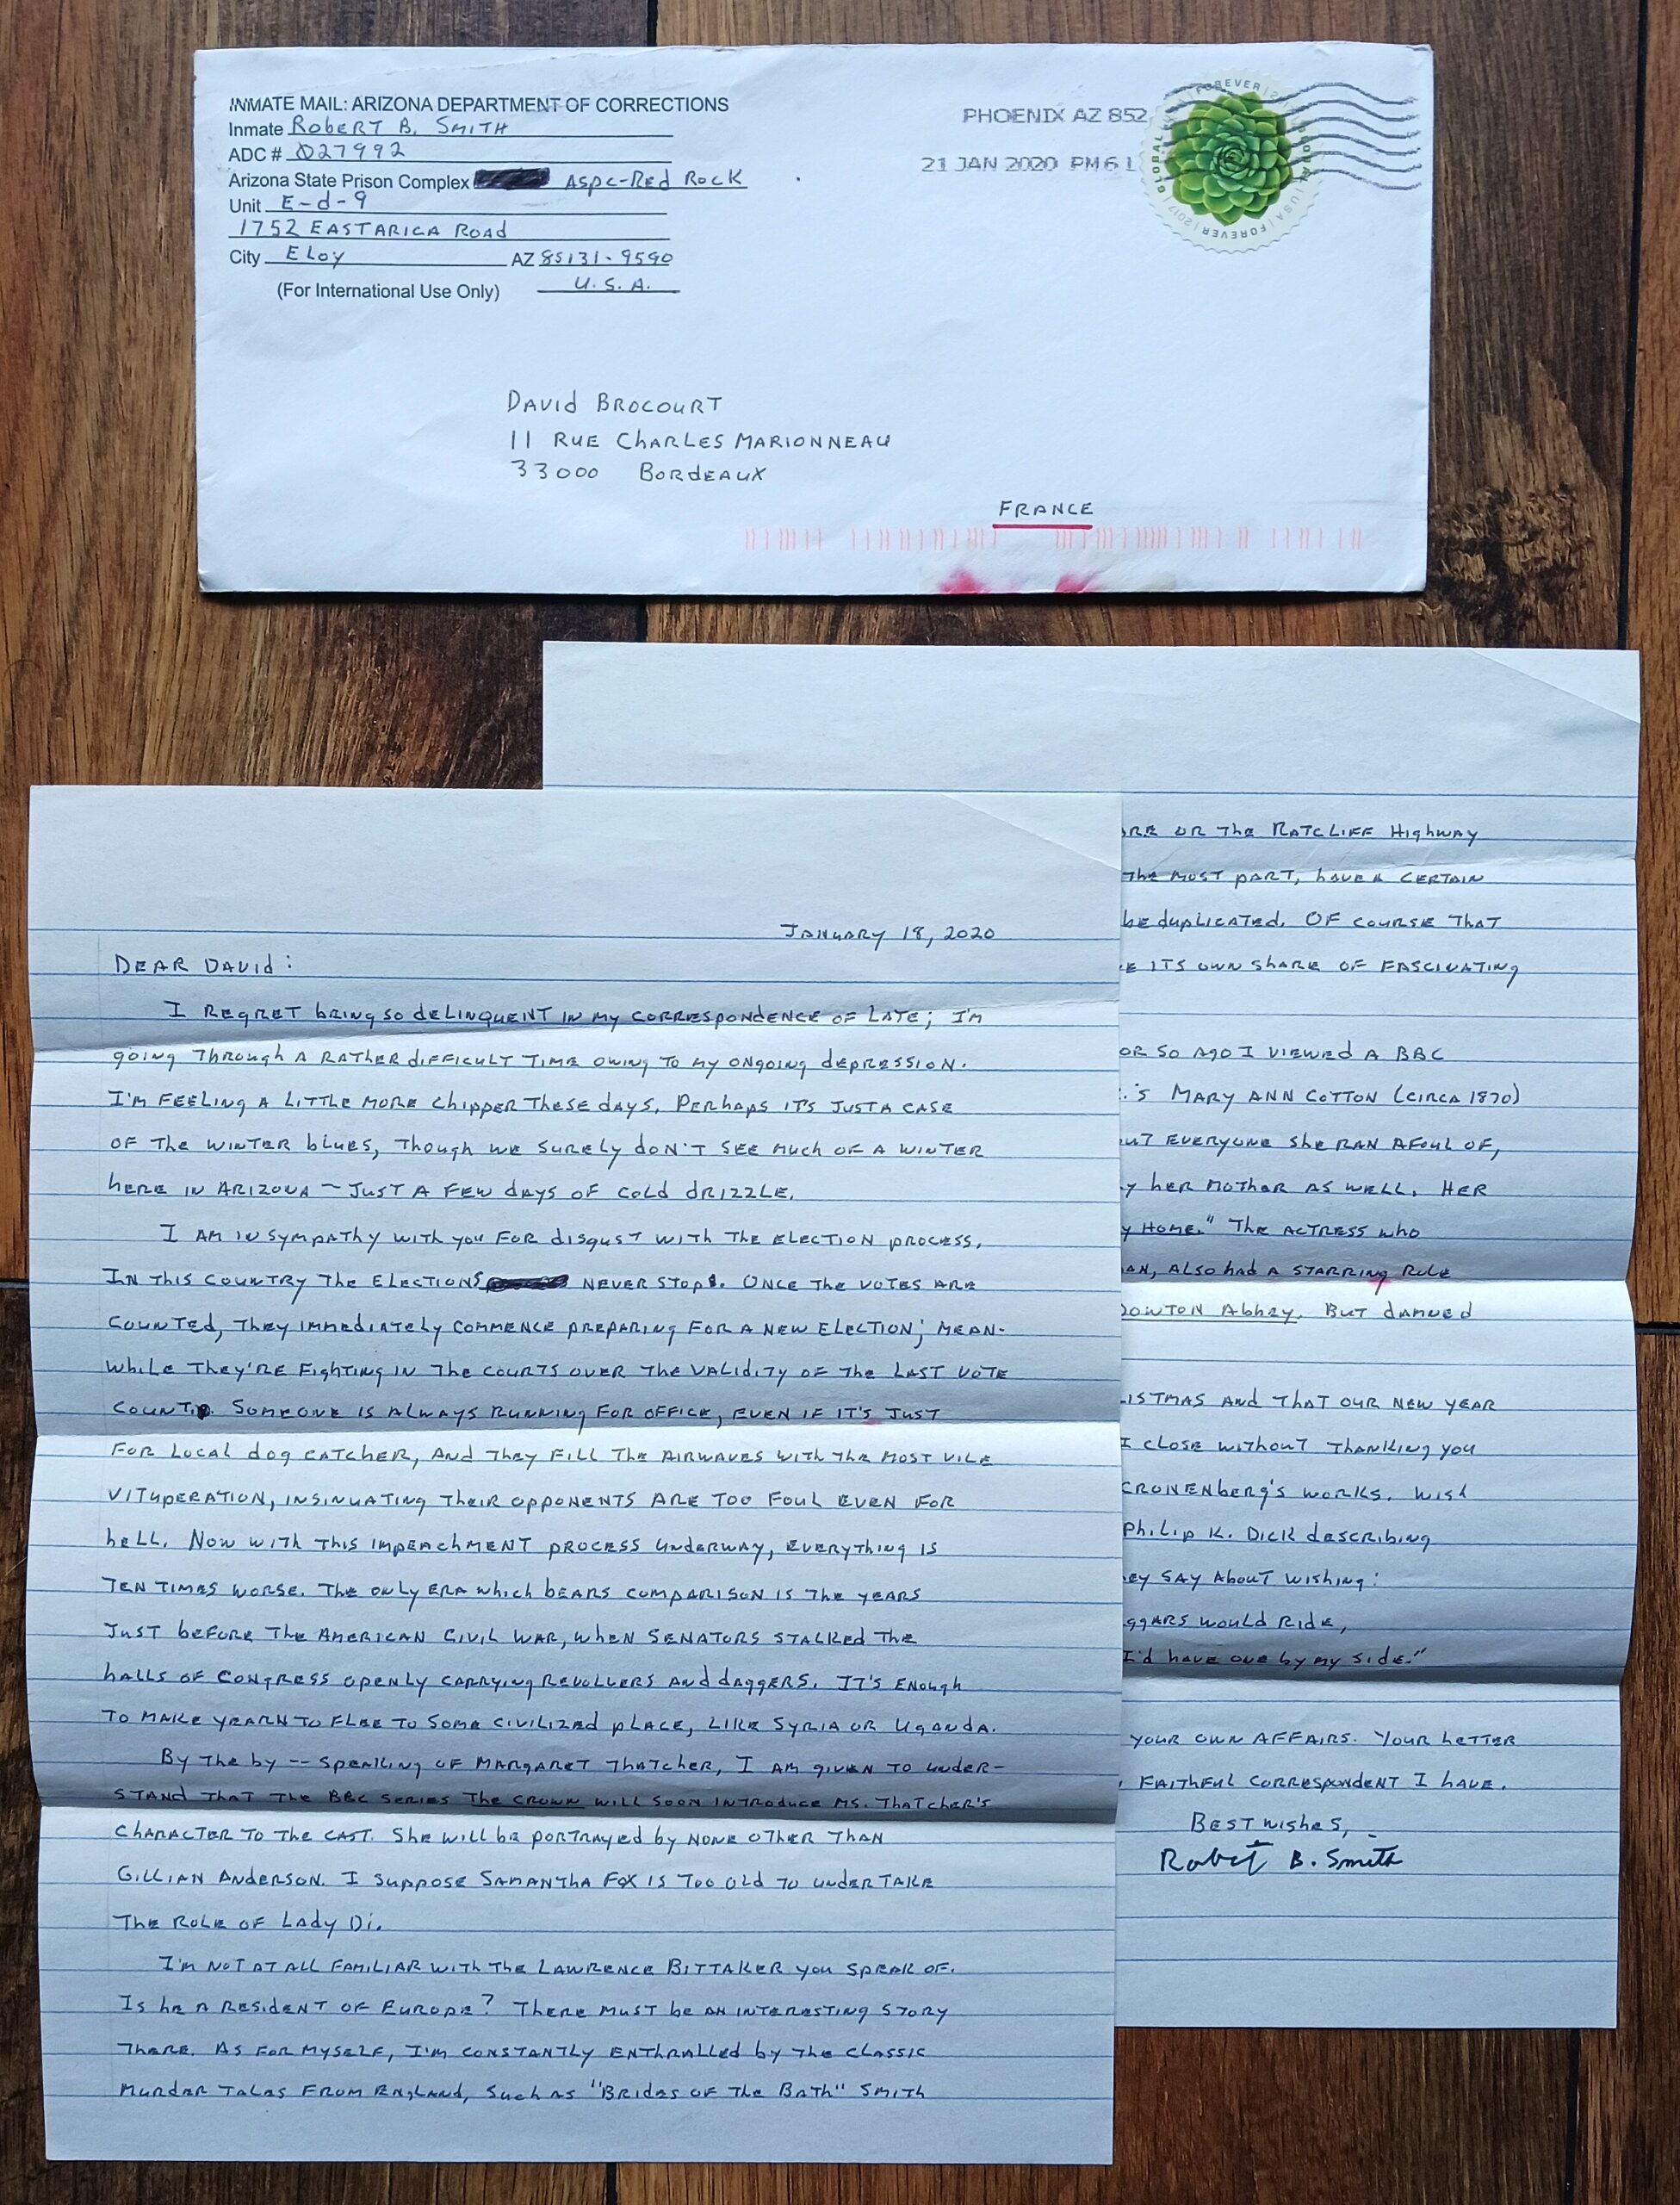 INMATE MAIL: ARIZONA DEPARTMENT OF CORRECTIONS
Inmate ROBERT B. SMITH
ADC # 027992
Arizona State Prison Complex ASPC-RED ROCK
Unit E-d-9
1752 EASTARICA ROAD
City ELOY AZ 85131-9590
(For International Use Only) U.S.A.
PHOENIX AZ 852
21 JAN 2020 PM 6 L
GLOBAL FOREVER USA 2017
DAVID BROCOURT
11 RUE CHARLES MARIONNEAU
33000 BORDEAUX
FRANCE
JANUARY 18, 2020
DEAR DAVID:
I REGRET BRING SO DELINQUENT IN MY CORRESPONDENCE OF LATE; I'M
GOING THROUGH A RATHER DIFFICULT TIME OWING TO MY ONGOING DEPRESSION.
I'M FEELING A LITTLE MORE CHIPPER THESE DAYS. PERHAPS IT'S JUST A CASE
OF THE WINTER BLUES, THOUGH WE SURELY DON'T SEE MUCH OF A WINTER
HERE IN ARIZONA – JUST A FEW DAYS OF COLD DRIZZLE.
I AM IN SYMPATHY WITH YOU FOR DISGUST WITH THE ELECTION PROCESS.
IN THIS COUNTRY THE ELECTIONS NEVER STOP. ONCE THE VOTES ARE
COUNTED, THEY IMMEDIATELY COMMENCE PREPARING FOR A NEW ELECTION; MEAN-
WHILE THEY'RE FIGHTING IN THE COURTS OVER THE VALIDITY OF THE LAST VOTE
COUNT. SOMEONE IS ALWAYS RUNNING FOR OFFICE, EVEN IF IT'S JUST
FOR LOCAL DOG CATCHER, AND THEY FILL THE AIRWAVES WITH THE MOST VILE
VITUPERATION, INSINUATING THEIR OPPONENTS ARE TOO FOUL EVEN FOR
HELL. NOW WITH THIS IMPEACHMENT PROCESS UNDERWAY, EVERYTHING IS
TEN TIMES WORSE. THE ONLY ERA WHICH BEARS COMPARISON IS THE YEARS
JUST BEFORE THE AMERICAN CIVIL WAR, WHEN SENATORS STALKED THE
HALLS OF CONGRESS OPENLY CARRYING REVOLLERS AND DAGGERS. IT'S ENOUGH
TO MAKE YEARN TO FLEE TO SOME CIVILIZED PLACE, LIKE SYRIA OR UGANDA.
BY THE BY -- SPEAKING OF MARGARET THATCHER, I AM GIVEN TO UNDER-
STAND THAT THE BBC SERIES THE CROWN WILL SOON INTRODUCE MS. THATCHER'S
CHARACTER TO THE CAST. SHE WILL BE PORTRAYED BY NONE OTHER THAN
GILLIAN ANDERSON. I SUPPOSE SAMANTHA FOX IS TOO OLD TO UNDERTAKE
THE ROLE OF LADY DI.
I'M NOT AT ALL FAMILIAR WITH THE LAWRENCE BITTAKER YOU SPEAK OF.
IS HE A RESIDENT OF EUROPE? THERE MUST BE AN INTERESTING STORY
THERE. AS FOR MYSELF, I'M CONSTANTLY ENTHRALLED BY THE CLASSIC
MURDER TALES FROM ENGLAND, SUCH AS "BRIDES OF THE BATH" SMITH
OR THE RATCLIFF HIGHWAY
THE MOST PART, HAVE A CERTAIN
BE DUPLICATED. OF COURSE THAT
ITS OWN SHARE OF FASCINATING
OR SO AGO I VIEWED A BBC
MARY ANN COTTON (CIRCA 1870)
EVERYONE SHE RAN AFOUL OF,
HER MOTHER AS WELL. HER
HOME." THE ACTRESS WHO
ALSO HAD A STARRING ROLE
DOWTON ABBEY. BUT DAMNED
AND THAT OUR NEW YEAR
I CLOSE WITHOUT THANKING YOU
CRONENBERG'S WORKS. WISH
PHILIP K. DICK DESCRIBING
SAY ABOUT WISHING:
WOULD RIDE,
I'D HAVE ONE BY MY SIDE."
YOUR OWN AFFAIRS. YOUR LETTER
FAITHFUL CORRESPONDENT I HAVE.
BEST WISHES,
Robert B. Smith